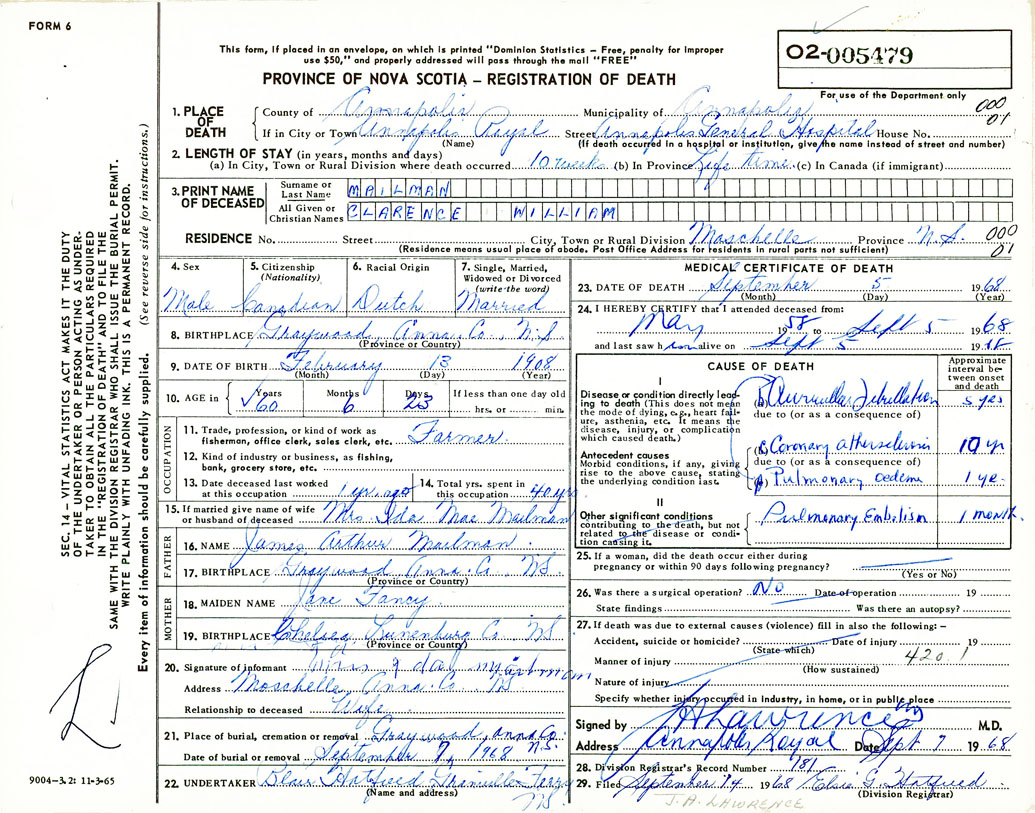 FORM 6
This form, if placed in an envelope, on which is printed "Dominion Statistics – Free, penalty for improper
use $50," and properly addressed will pass through the mail "FREE"
02-005479
PROVINCE OF NOVA SCOTIA – REGISTRATION OF DEATH
For use of the Department only
000
01
1. PLACE OF DEATH
County of Annapolis Municipality of Annapolis
If in City or Town Annapolis Royal Street Annapolis General Hospital House No.
(Name) (If death occurred in a hospital or institution, give the name instead of street and number)
2. LENGTH OF STAY (in years, months and days)
(a) In City, Town or Rural Division where death occurred 10 weeks (b) In Province Life time (c) In Canada (if immigrant)
3. PRINT NAME OF DECEASED
Surname or Last Name MAILMAN
All Given or Christian Names CLARENCE WILLIAM
RESIDENCE No. Street City, Town or Rural Division Moschelle Province N.S. 000
01
(Residence means usual place of abode. Post Office Address for residents in rural parts not sufficient)
4. Sex 5. Citizenship (Nationality) 6. Racial Origin 7. Single, Married, Widowed or Divorced (write the word)
Male Canadian Dutch Married
8. BIRTHPLACE Graywood Anna. Co., N.S
(Province or Country)
9. DATE OF BIRTH February 13 1908
(Month) (Day) (Year)
10. AGE in Years 60 Months 6 Days 23 If less than one day old
hrs. or min.
OCCUPATION
11. Trade, profession, or kind of work as
fisherman, office clerk, sales clerk, etc. Farmer
12. Kind of industry or business, as fishing,
bank, grocery store, etc.
13. Date deceased last worked
at this occupation 1 yr. ago
14. Total yrs. spent in
this occupation 40 yrs
15. If married give name of wife
or husband of deceased Mrs Ida Mae Mailman
FATHER
16. NAME James Arthur Mailman
17. BIRTHPLACE Graywood Anna. Co., N.S.
(Province or Country)
MOTHER
18. MAIDEN NAME Jane Fancy
19. BIRTHPLACE Chelsea Lunenburg Co NS
(Province or Country)
20. Signature of informant Mrs
Address Moschelle, Anna. Co NS
Relationship to deceased Wife
21. Place of burial, cremation or removal Graywood, Anna Co. N.S.
Date of burial or removal September 7, 1968
22. UNDERTAKER Blair Hatfield Granville Ferry NS
(Name and address)
MEDICAL CERTIFICATE OF DEATH
23. DATE OF DEATH September 5 1968
(Month) (Day) (Year)
24. I HEREBY CERTIFY that I attended deceased from:
May 1958 to Sept 5 1968
and last saw him alive on Sept 5 19
CAUSE OF DEATH
Approximate interval between onset and death
I
Disease or condition directly leading to death (This does not mean
the mode of dying, e.g., heart failure, asthenia, etc. It means the
disease, injury, or complication
which caused death.)
Auricular Fibrillation 5 yrs
due to (or as a consequence of)
Antecedent causes
Morbid conditions, if any, giving
rise to the above cause, stating
the underlying condition last.
Coronary atherosclerosis 10 yr
due to (or as a consequence of)
Pulmonary oedema 1 yr
II
Other significant conditions
contributing to the death, but not
related to the disease or condition causing it.
Pulmonary Embolism 1 month
25. If a woman, did the death occur either during
pregnancy or within 90 days following pregnancy?
(Yes or No)
26. Was there a surgical operation? No Date of operation 19
State findings Was there an autopsy?
27. If death was due to external causes (violence) fill in also the following: –
Accident, suicide or homicide? Date of injury 19
(State which)
Manner of injury 420.1
(How sustained)
Nature of injury
Specify whether injury occurred in industry, in home, or in public place
Signed by Lawrence M.D.
Address Annapolis Royal Date Sept 7 1968
28. Division Registrar's Record Number 181
29. Filed September 14 1968 Elsie G. Hatfield
(Division Registrar)
J.A. LAWRENCE
SEC. 14 – VITAL STATISTICS ACT MAKES IT THE DUTY
OF THE UNDERTAKER OR PERSON ACTING AS UNDER-
TAKER TO OBTAIN ALL THE PARTICULARS REQUIRED
IN THE "REGISTRATION OF DEATH" AND TO FILE THE
SAME WITH THE DIVISION REGISTRAR WHO SHALL ISSUE THE BURIAL PERMIT.
WRITE PLAINLY WITH UNFADING INK. THIS IS A PERMANENT RECORD.
Every item of information should be carefully supplied. (See reverse side for instructions.)
9004-3.2: 11-3-65